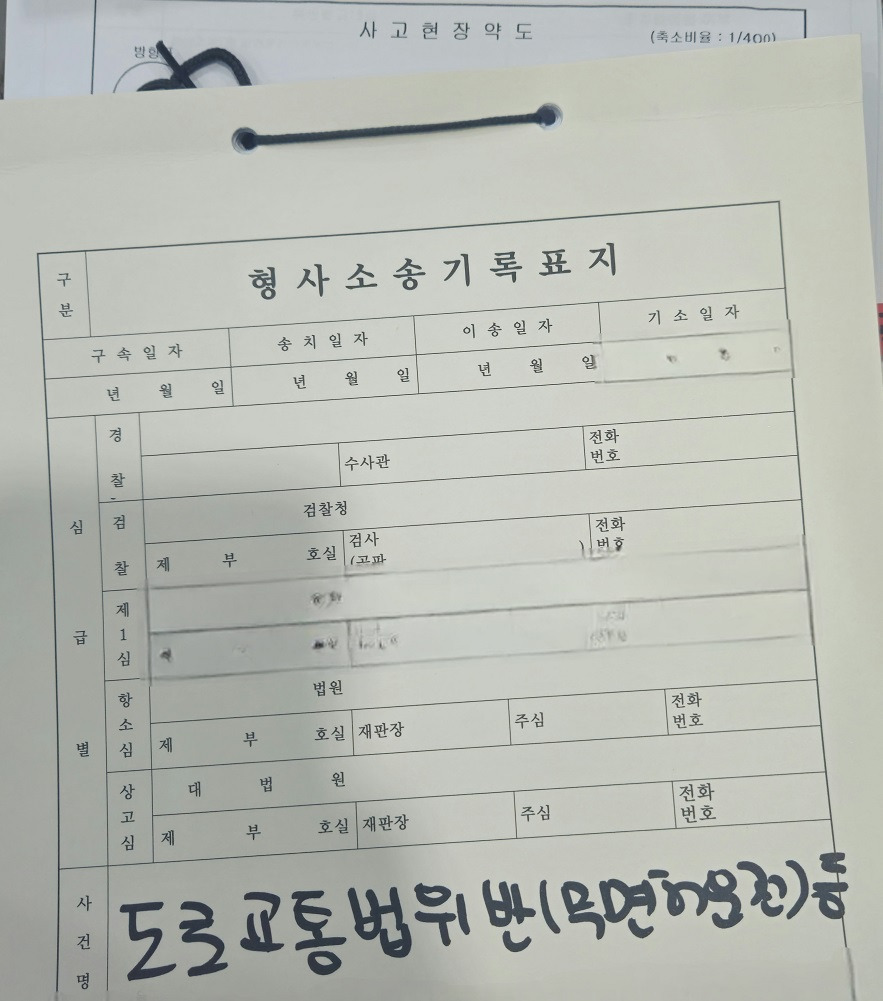 사 고 현 장 약 도
(축소비율 : 1/400)
구분
형 사 소 송 기 록 표 지
구 속 일 자 송 치 일 자 이 송 일 자 기 소 일 자
년 월 일 년 월 일 년 월 일
심급별
경찰
수사관 전화번호
검찰
검찰청
제 부 호실 검사 ( ) 전화번호
제1심
항소심
법원
제 부 호실 재판장 주심 전화번호
상고심
대 법 원
제 부 호실 재판장 주심 전화번호
사건명
도로교통법위반( 면허운전)등